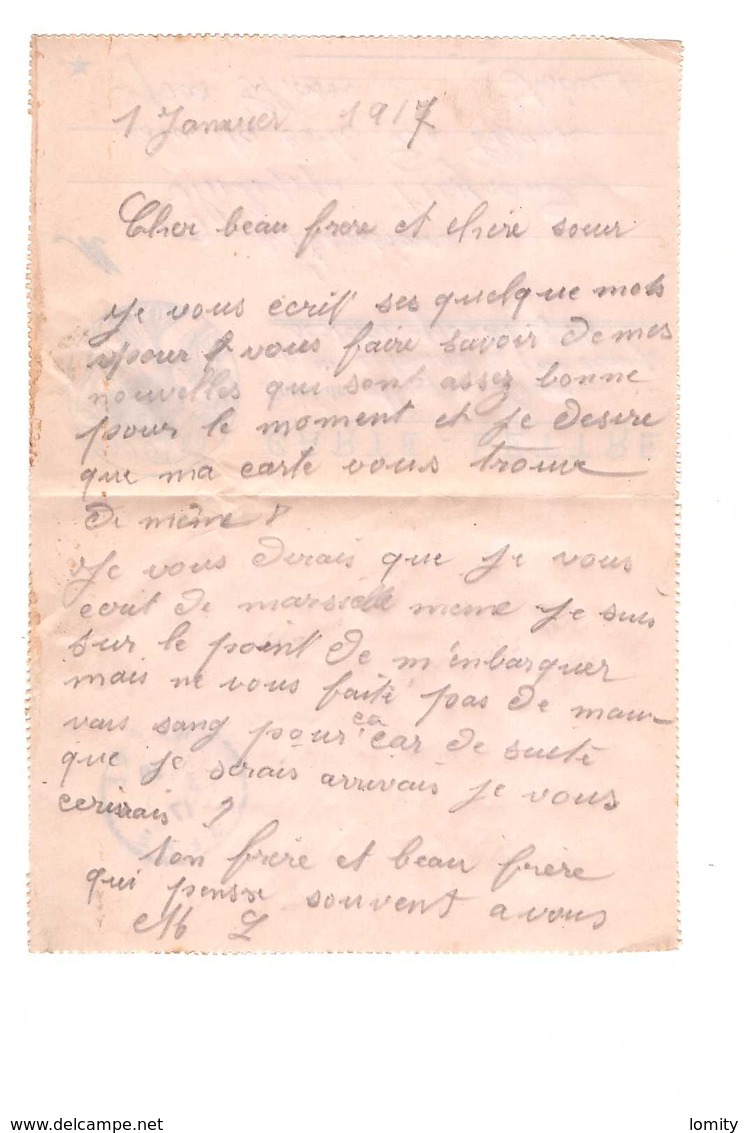 1 Janvier 1917
Cher beau frere et chere soeur
Je vous ecrit ses quelque mots
pour vous faire savoir de mes
nouvelles qui sont assez bonne
pour le moment et je desire
que ma carte vous trouve
de même
Je vous dirais que je vous
ecrit de marseille meme je suis
sur le point de m'enbarquer
mais ne vous faite pas de mau-
vais sang pour ca car de suite
que je serais arrivais je vous
ecrirais
ton frere et beau frère
qui pensse souvent a vous
M L
www.delcampe.net
lomity